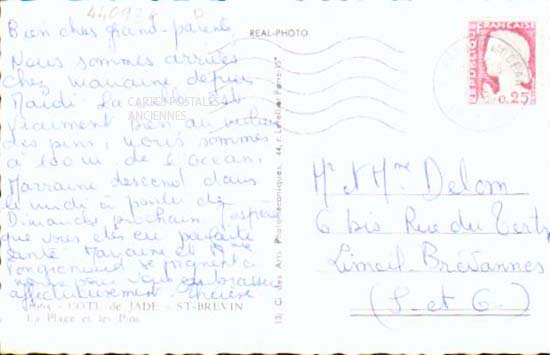 440924
Bien chers grand-parents
Nous sommes arrivés
chez marraine depuis
Mardi la
CARTES POSTALES
ANCIENNES
vraiment bien au milieu
des pins, nous sommes
à 100 m de l'océan.
Marraine descend dans
le midi à partir de
Dimanche prochain j'espère
que vous êtes en parfaite
santé Marraine et Mme
se joignent à
nous pour vous embrasser
affectueusement
COTE de JADE - ST-BREVIN
La Plage et les Pins
REAL-PHOTO
13, C. des Arts Photomécaniques, 44, r. Letellier, Paris-15°
REPUBLIQUE FRANÇAISE
0,25
Mr et Mme Delom
6 bis Rue du Tertre
Limeil-Brévannes
(S-et-O-)